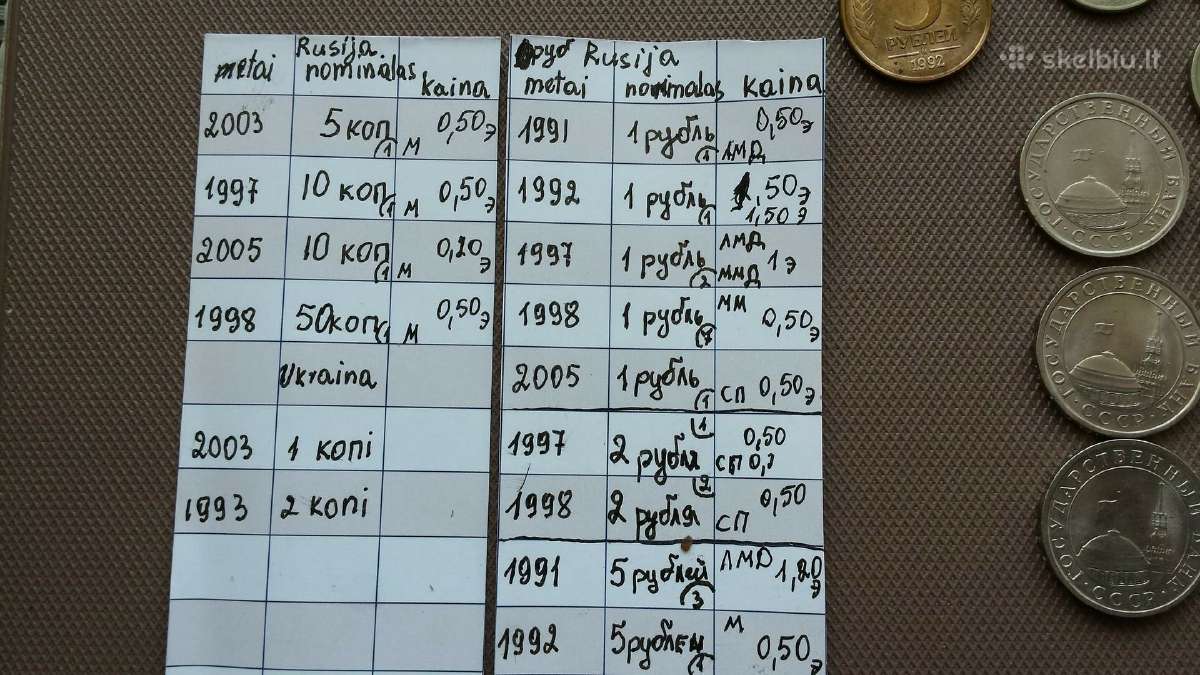 Rusija
metai nominalas kaina
2003 5 коп (1 м 0,50 э
1997 10 коп (1 м 0,50 э
2005 10 коп (1 м 0,20 э
1998 50 коп (1 м 0,50 э
Ukraina
2003 1 копі
1993 2 копі
руб Rusija
metai nominalas kaina
1991 1 рубль (1 ЛМД 0,50 э
1992 1 рубль (1 1,50 э
1,50 э
1997 1 рубль (2 ЛМД
ММД 1 э
1998 1 рубль ММ 0,50 э
2005 1 рубль (1 СП 0,50 э
1997 2 рубля (1 0,50
СП
1998 2 рубля (2 СП 0,50
1991 5 рублей (3 ЛМД 1,20 э
1992 5 рублей (1 м 0,50 э
5
РУБЛЕЙ
1992
skelbiu.lt
ГОСУДАРСТВЕННЫЙ БАНК
СССР
ГОСУДАРСТВЕННЫЙ БАНК
СССР
ГОСУДАРСТВЕННЫЙ БАНК
СССР